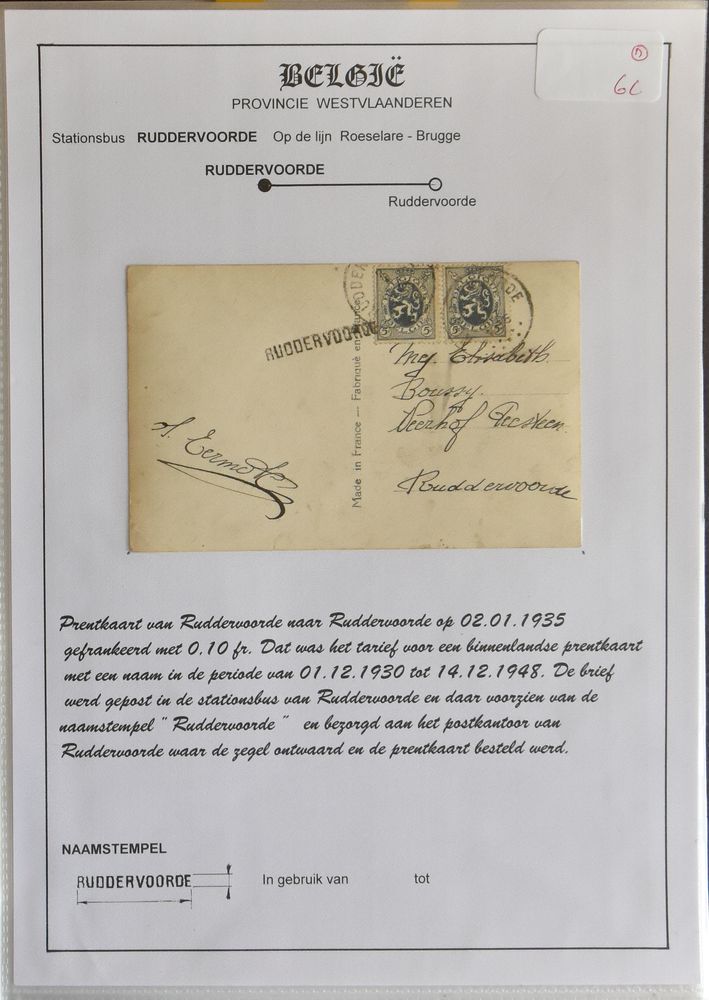 BELGIË
PROVINCIE WESTVLAANDEREN
Stationsbus RUDDERVOORDE Op de lijn Roeselare - Brugge
RUDDERVOORDE
Ruddervoorde
RUDDERVOORDE
Made in France — Fabriqué en France
5 5 5 5
Mej. Elisabeth
Boussy.
Ruddervoorde
Prentkaart van Ruddervoorde naar Ruddervoorde op 02.01.1935
gefrankeerd met 0.10 fr. Dat was het tarief voor een binnenlandse prentkaart
met een naam in de periode van 01.12.1930 tot 14.12.1948. De brief
werd gepost in de stationsbus van Ruddervoorde en daar voorzien van de
naamstempel " Ruddervoorde " en bezorgd aan het postkantoor van
Ruddervoorde waar de zegel ontwaard en de prentkaart besteld werd.
NAAMSTEMPEL
RUDDERVOORDE In gebruik van tot